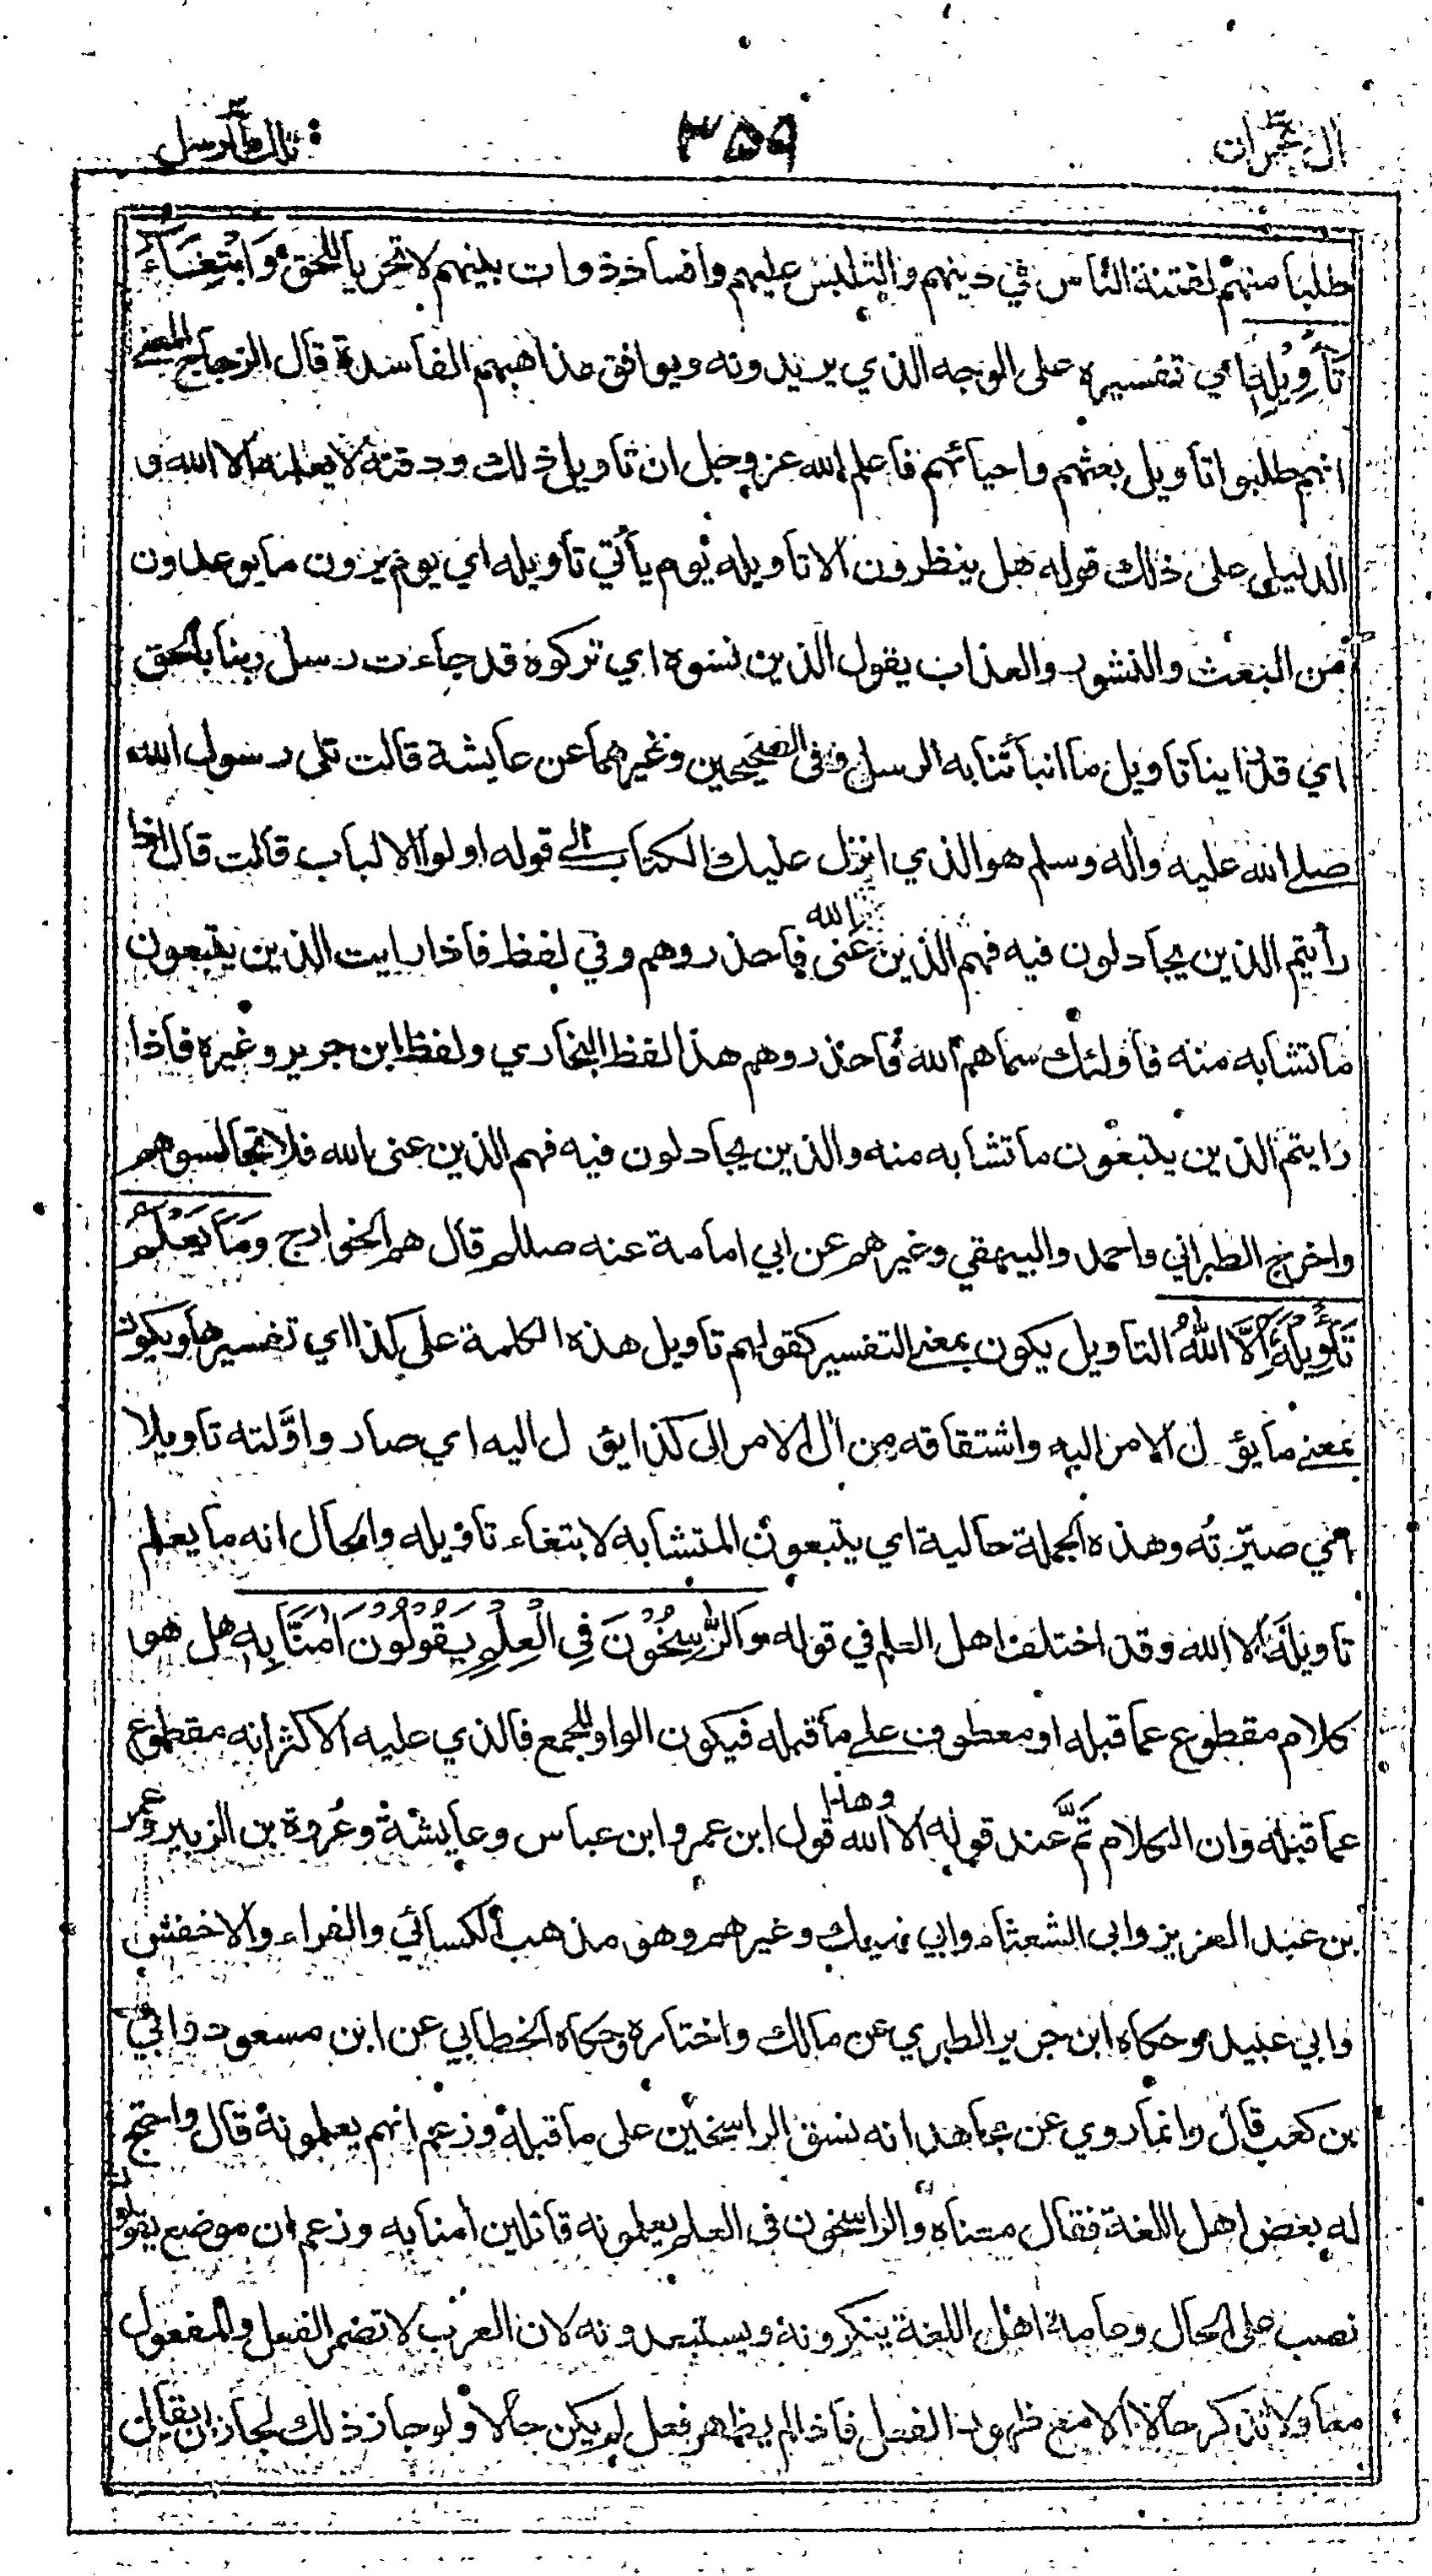 ال عمران
٣٥٩
تلك الرسل
طلبا منهم لفتنة الناس في دينهم والتلبس عليهم وافساد ذوات بينهم لا تحريا للحق وَابْتِغَاءَ
تَأْوِيْلِهٖ اي تفسيره على الوجه الذي يريدونه ويوافق مذاهبهم الفاسدة قال الزجاج المعنى
انهم طلبوا تاويل بعثهم واحيائهم فاعلم الله عز وجل ان تاويل ذلك ووقته لا يعلمه الا الله و
الدليل على ذلك قوله هل ينظرون الا تاويله يوم يأتي تأويله اي يوم يرون ما يوعدون
من البعث والنشور والعذاب يقول الذين نسوه اي تركوه قد جاءت رسل ربنا بالحق
اي قد راينا تاويل ما انبأتنا به الرسل وفى الصحيحين وغيرهما عن عايشة قالت تلى رسول الله
صلى الله عليه واله وسلم هو الذي انزل عليك الكتاب الى قوله اولوا الالباب قالت قال اذا
رأيتم الذين يجادلون فيه فهم الذين عنى الله فاحذروهم وفي لفظ فاذا رايت الذين يتبعون
ما تشابه منه فاولئك سماهم الله فاحذروهم هذا لفظ البخاري ولفظ ابن جرير وغيره فاذا
رايتم الذين يتبعون ما تشابه منه والذين يجادلون فيه فهم الذين عنى الله فلا تجالسوهم
واخرج الطبراني واحمد والبيهقي وغيرهم عن ابي امامة عنه صللم قال هم الخوارج وَمَا يَعْلَمُ
تَأْوِيْلَهٗ اِلَّا اللّٰهُ التاويل يكون بمعنى التفسير كقولهم تاويل هذه الكلمة على كذا اي تفسيرها ويكون
بمعنى ما يؤل الامر اليه واشتقاقه من ال الامر الى كذا يؤل اليه اي صار واوَّلته تاويلا
اي صيّرتُه وهذه الجملة حالية اي يتبعون المتشابه لابتغاء تاويله والحال انه ما يعلم
تاويله الا الله وقد اختلف اهل العلم في قوله وَالرّٰسِخُوْنَ فِي الْعِلْمِ يَقُوْلُوْنَ اٰمَنَّا بِهٖ هل هو
كلام مقطوع عما قبله او معطوف على ما قبله فيكون الواو للجمع فالذي عليه الاكثر انه مقطوع
عما قبله وان الكلام تمَّ عند قوله الا الله وهذا قول ابن عمر وابن عباس وعايشة وعُروة بن الزبير وعمر
بن عبد العزيز وابى الشعثاء وابي نهيك وغيرهم وهو مذهب الكسائي والفراء والاخفش
وابي عبيد وحكاه ابن جرير الطبري عن مالك واختاره وحكاه الخطابي عن ابن مسعود وابي
بن كعب قال وانما روي عن مجاهد انه نسق الراسخين على ما قبله وزعم انهم يعلمونه قال واحتج
له بعض اهل اللغة فقال معناه والراسخون فى العلم يعلمونه قائلين امنا به وزعم ان موضع يقولون
نصب على الحال وعامة اهل اللغة ينكرونه ويستبعدونه لان العرب لا تضمر الفعل والمفعول
معا ولا تذكر حالا الا مع ظهور الفعل فاذا لم يظهر فعل لم يكن حالا ولو جاز ذلك لجاز ان يقال